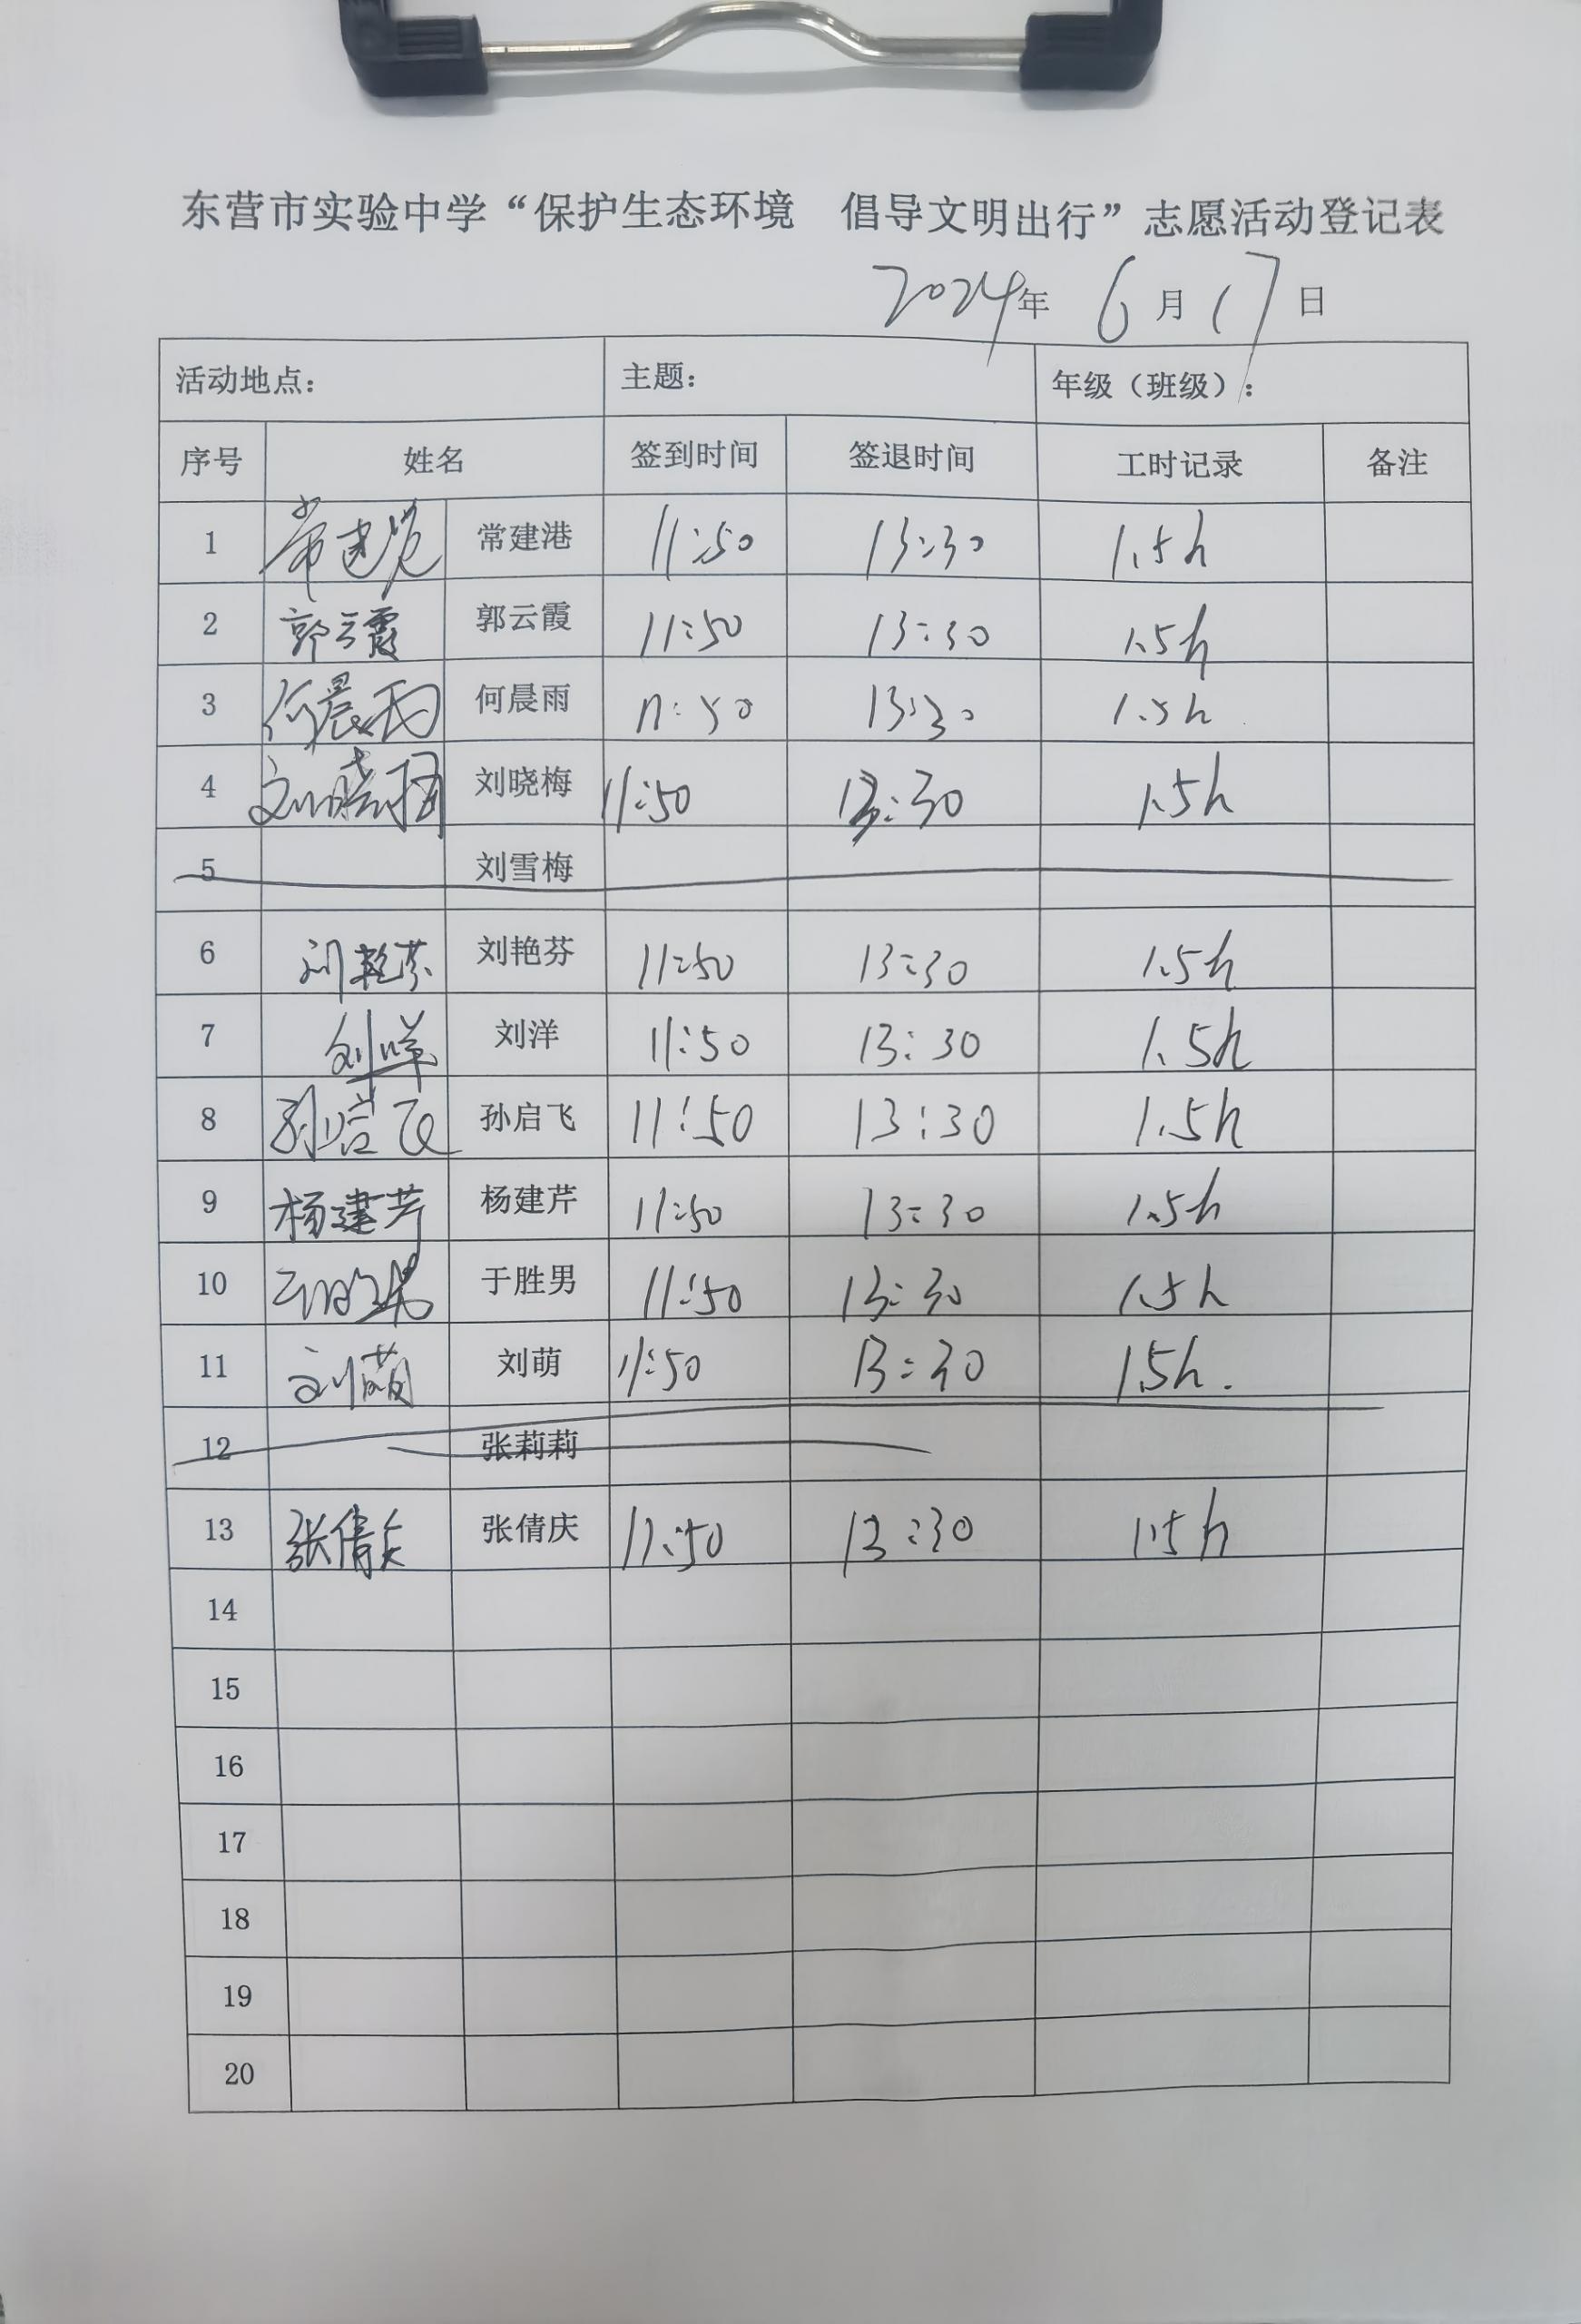 东营市实验中学“保护生态环境 倡导文明出行”志愿活动登记表
2024年 6月17日
活动地点: 主题: 年级（班级）:
序号 姓名 签到时间 签退时间 工时记录 备注
1 常建港 常建港 11:50 13:30 1.5h
2 郭云霞 郭云霞 11:50 13:30 1.5h
3 何晨雨 何晨雨 11:50 13:30 1.5h
4 刘晓梅 刘晓梅 11:50 13:30 1.5h
5 刘雪梅
6 刘艳芬 刘艳芬 11:50 13:30 1.5h
7 刘洋 刘洋 11:50 13:30 1.5h
8 孙启飞 孙启飞 11:50 13:30 1.5h
9 杨建芹 杨建芹 11:50 13:30 1.5h
10 于胜男 于胜男 11:50 13:30 1.5h
11 刘萌 刘萌 11:50 13:30 1.5h.
12 张莉莉
13 张倩庆 张倩庆 11:50 13:30 1.5h
14
15
16
17
18
19
20